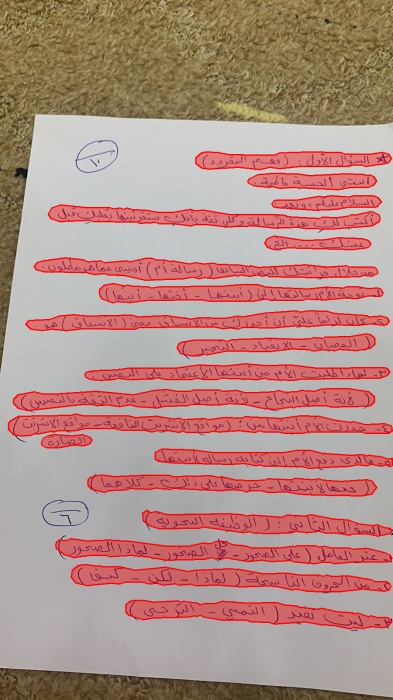 ١٠
* السؤال الأول: (فهم المقروء)
ابنتي الحبيبة فاطمة
السلام عليكم، وبعد
أكتب لك هذه الرسالة وكلي ثقة بأنك ستقرئينها بقلبك قبل
عينيك .... الخ
من خلال قراءتك للنص السابق (رسالة أم) أجيبي عما هو مطلوب.
١- توجه الأم رسالتها إلى (ابنتها - أختها - أبيها)
٢- كان لزاماً علي أن أحذرك من الانسياق معنى (الانسياق) هو:
(العصيان - الانقياد - التحيز)
٣- لماذا طلبت الأم من ابنتها الاعتماد على النفس.
(لأنه أصل النجاح - لأنه أصل الفشل - عدم الثقة بالنفس)
٤- حذرت الأم ابنتها من: (مواقع الانترنت النافعة - مواقع الانترنت
الضارة)
٥- ما الذي دفع الأم إلى كتابة رسالة لابنتها
(حبها لابنتها - حرصها على ذلك - كلاهما)
٦
السؤال الثاني: (الوظيفة النحوية)
١- عند العامل (على الصخور - الصخور - لماذا الصخور)
٢- من الحروف الناسخة (لماذا - لكن - كيف)
٣- ليت تفيد (التمني - الترجي)